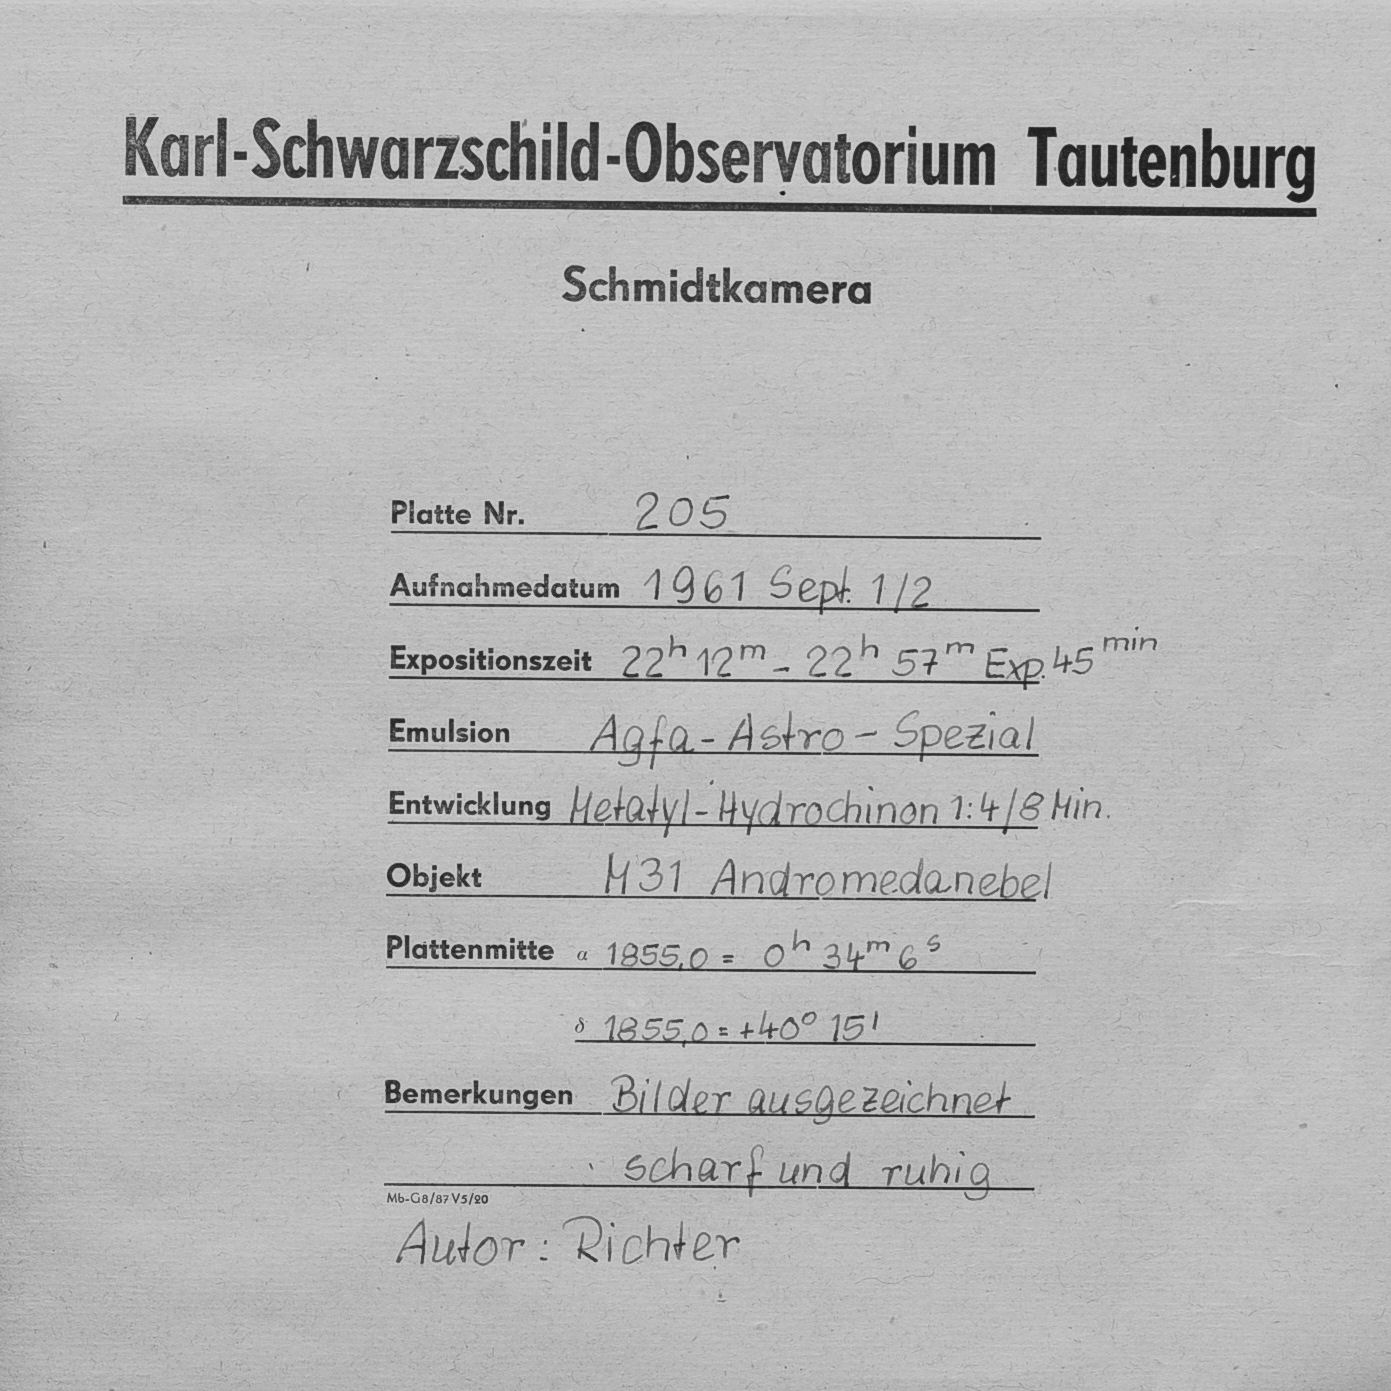 Karl-Schwarzschild-Observatorium Tautenburg
Schmidtkamera
Platte Nr. 205
Aufnahmedatum 1961 Sept. 1/2
Expositionszeit 22ʰ 12ᵐ - 22ʰ 57ᵐ Exp. 45ᵐⁱⁿ
Emulsion Agfa-Astro-Spezial
Entwicklung Metatyl-Hydrochinon 1:4/8 Min.
Objekt M31 Andromedanebel
Plattenmitte α 1855,0 = 0ʰ 34ᵐ 6ˢ
δ 1855,0 = +40° 15'
Bemerkungen Bilder ausgezeichnet
scharf und ruhig
Mb-G8/87 V5/20
Autor: Richter